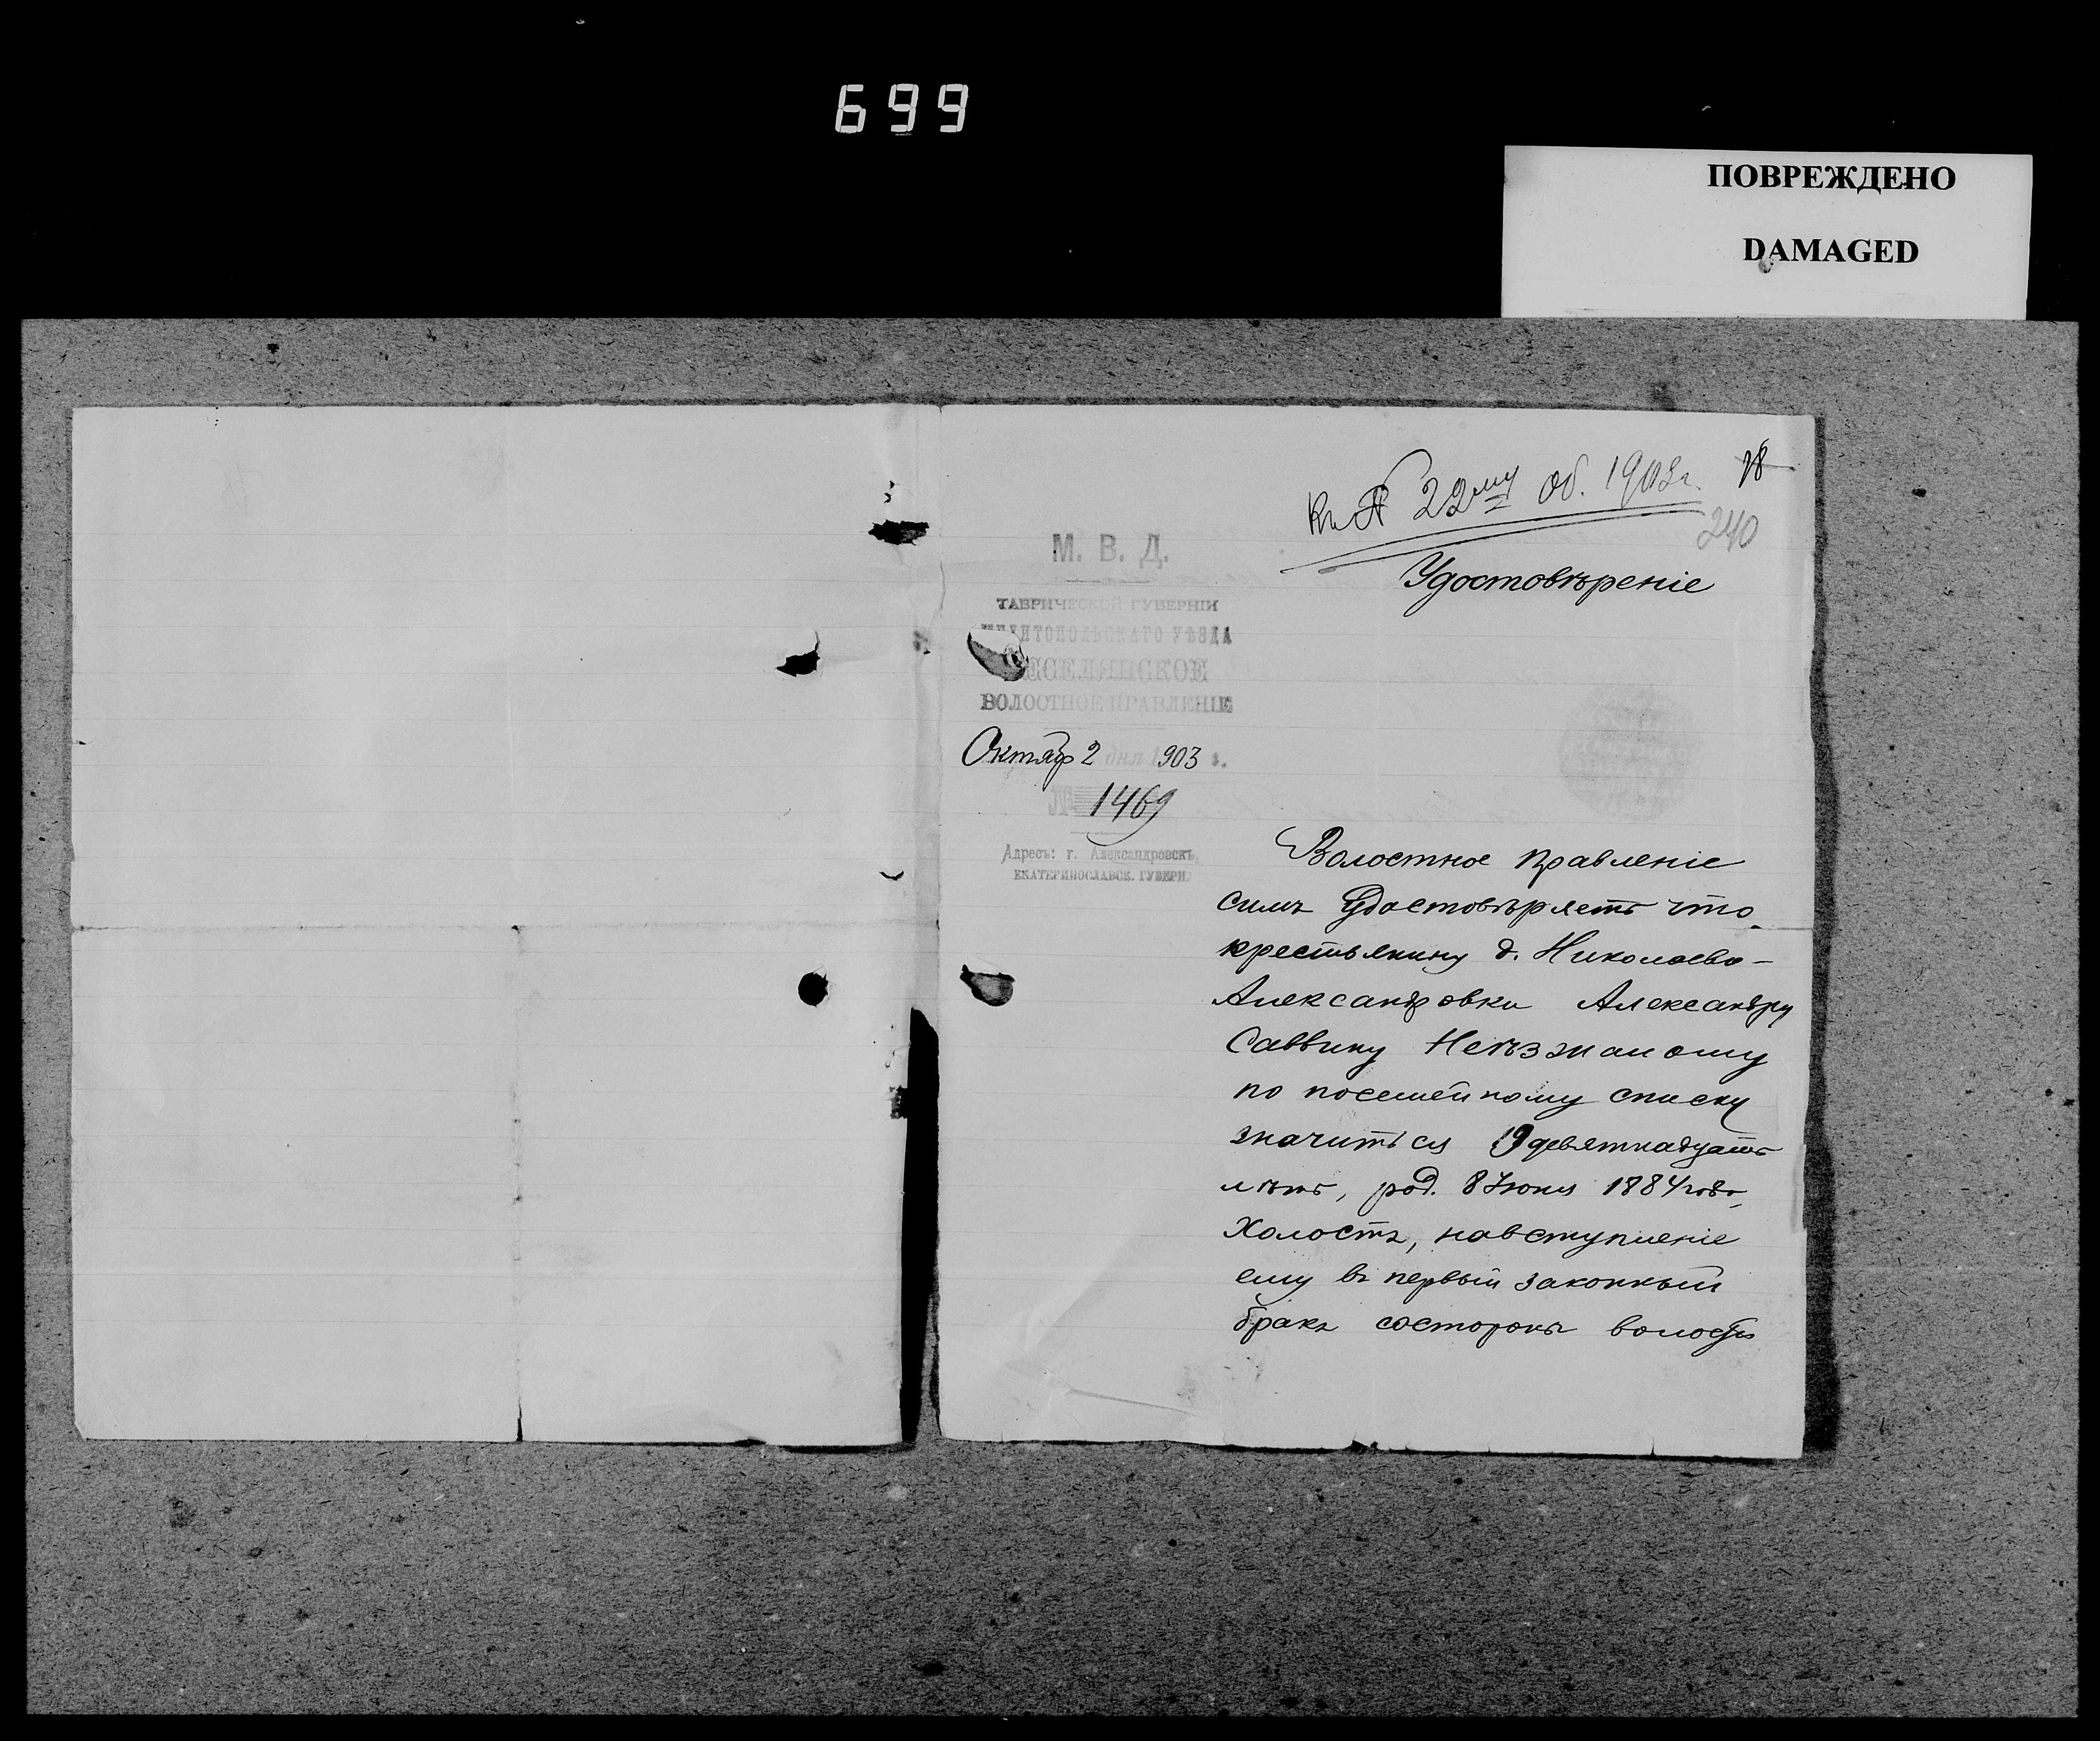 699
ПОВРЕЖДЕНО
DAMAGED
Къ № 22му об. 1903 г.
18
240
М. В. Д.
ТАВРИЧЕСКОЙ ГУБЕРНІИ
МЕЛИТОПОЛЬСКАГО УѢЗДА
ВЕСЕЛЯНСКОЕ
ВОЛОСТНОЕ ПРАВЛЕНІЕ
Октябр 2 дня 1903 г.
№ 1469
Адресъ: г. Александровскъ,
ЕКАТЕРИНОСЛАВСК. ГУБЕРН.
Удостовѣреніе
Волостное Правленіе
симъ Удостовѣряетъ что
крестьянину д. Николаево-
Александровки Александру
Саввину Неѣзжалому
по посемейному списку
значиться 19 девятнадцать
лѣтъ, род. 8 Іюня 1884 года,
Холостъ, на вступленіе
ему въ первый законный
бракъ состороны волости